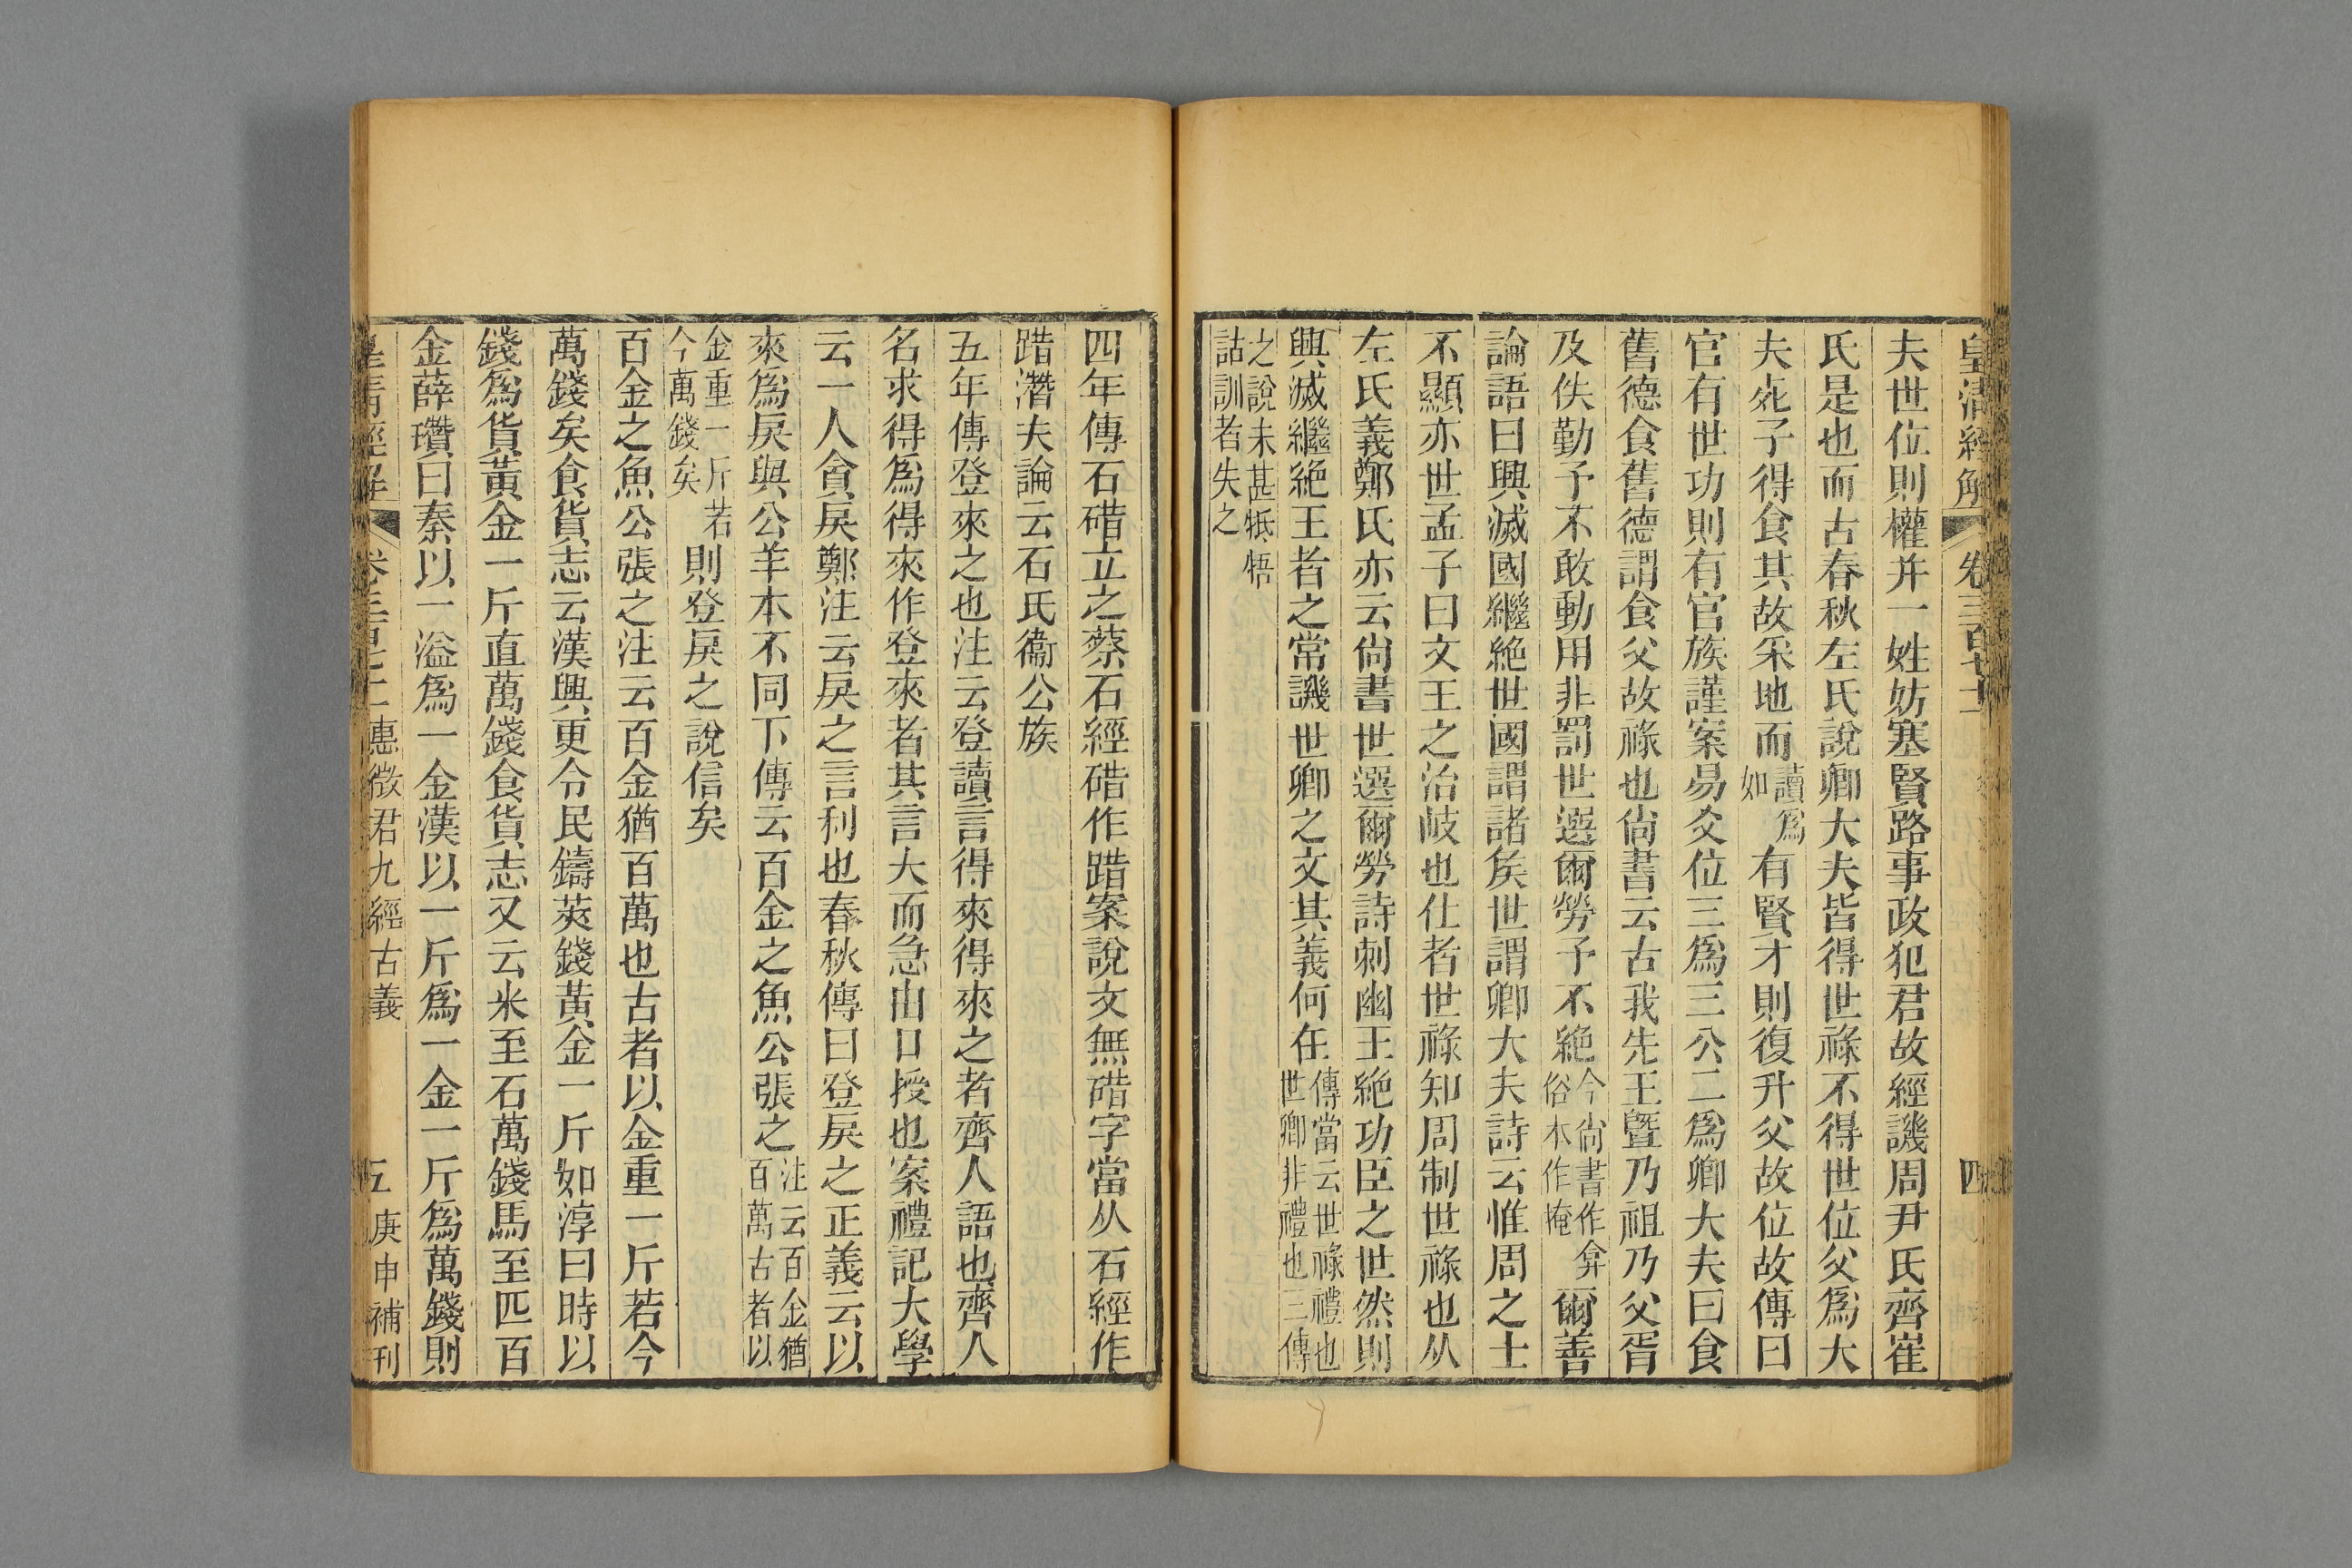 皇清經解 卷三百七十 四
夫世位則權并一姓妨塞賢路事政犯君故經譏周尹氏齊崔
氏是也而古春秋左氏說卿大夫皆得世祿不得世位父爲大
夫死子得食其故采地而讀爲如有賢才則復升父故位故傳曰
官有世功則有官族謹案易爻位三爲三公二爲卿大夫曰食
舊德食舊德謂食父故祿也尙書云古我先王曁乃祖乃父胥
及佚勤予不敢動用非罰世選爾勞予不絶今尙書作弇俗本作掩爾善
論語曰興滅國繼絶世國謂諸矦世謂卿大夫詩云惟周之士
不顯亦世孟子曰文王之治岐也仕者世祿知周制世祿也从
左氏義鄭氏亦云尙書世選爾勞詩刺幽王絶功臣之世然則
興滅繼絶王者之常譏世卿之文其義何在傳當云世祿禮也世卿非禮也三傳
之說未甚牴牾詁訓者失之
四年傳石碏立之蔡石經碏作踖案說文無碏字當从石經作
踖潛夫論云石氏衞公族
五年傳登來之也注云登讀言得來得來之者齊人語也齊人
名求得爲得來作登來者其言大而急由口授也案禮記大學
云一人貪戾鄭注云戾之言利也春秋傳曰登戾之正義云以
來爲戾與公羊本不同下傳云百金之魚公張之注云百金猶百萬古者以
金重一斤若今萬錢矣則登戾之說信矣
百金之魚公張之注云百金猶百萬也古者以金重一斤若今
萬錢矣食貨志云漢興更令民鑄莢錢黃金一斤如淳曰時以
錢爲貨黃金一斤直萬錢食貨志又云米至石萬錢馬至匹百
金薛瓚曰秦以一溢爲一金漢以一斤爲一金一斤爲萬錢則
皇清經解 惠徵君九經古義 五 庚申補刊